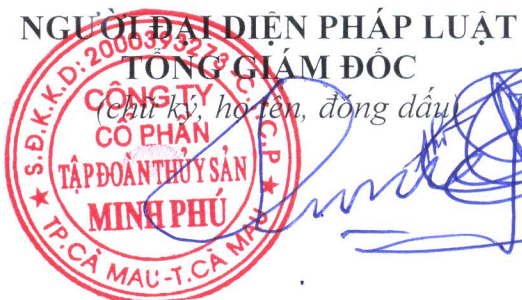 NGƯỜI ĐẠI DIỆN PHÁP LUẬT
TỔNG GIÁM ĐỐC
(chữ ký, họ tên, đóng dấu)
S.Đ.K.K.D: 2000393273-C C.P
CÔNG TY
CỔ PHẦN
TẬP ĐOÀN THỦY SẢN
MINH PHÚ
TP.CÀ MAU-T.CÀ MAU